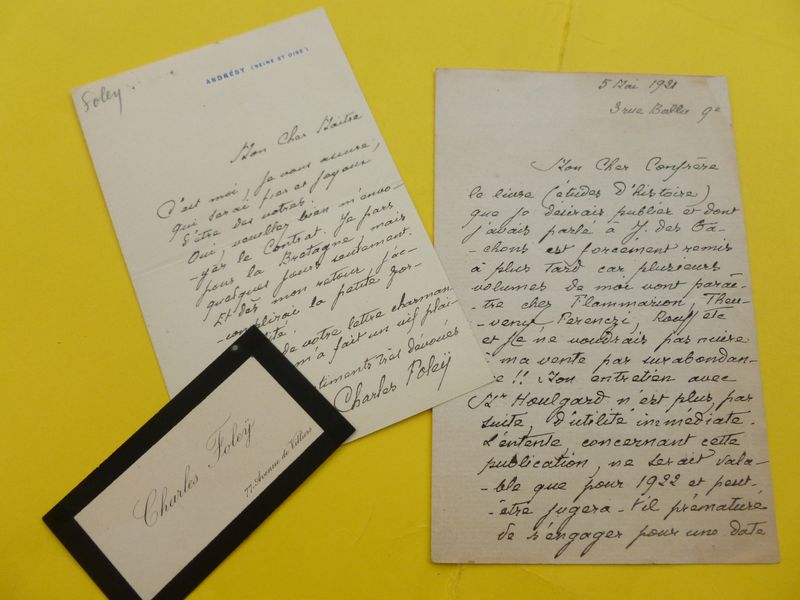 Foley
ANDRÉSY (SEINE ET OISE)
Mon Cher Maître
C'est moi, je vous assure,
qui serai fier et joyeux
d'être des vôtres.
Oui, veuillez bien m'envo-
-yer le Contrat. Je pars
pour la Bretagne, mais
quelques jours seulement.
Et dès mon retour, j'ac-
-complirai la petite for-
-lité.
de votre lettre charman
m'a fait un vif plai-
timents très dévoués
Charles Foleÿ
Charles Foleÿ
77, Avenue de Villiers
5 Mai 1921
3 rue Ballu 9e
Mon Cher Confrère
le livre (études d'histoire)
que je désirais publier et dont
j'avais parlé à J. des Gâ-
-chons est forcément remis
à plus tard car plusieurs
volumes de moi vont paraî-
-tre chez Flammarion, The-
Ferenczi, Rouff etc
et je ne voudrais pas nuire
à ma vente par surabondan-
-ce!! Mon entretien avec
Mr Houlgard n'est plus, par
suite, d'utilité immédiate.
L'entente concernant cette
publication, ne serait vala-
-ble que pour 1922 et peut-
-être jugera-t-il prématuré
de s'engager pour une date